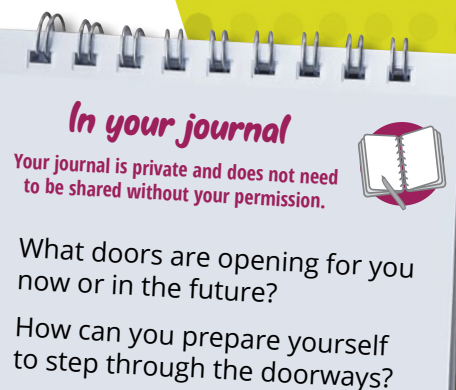 In your journal
Your journal is private and does not need
to be shared without your permission.
What doors are opening for you
now or in the future?
How can you prepare yourself
to step through the doorways?